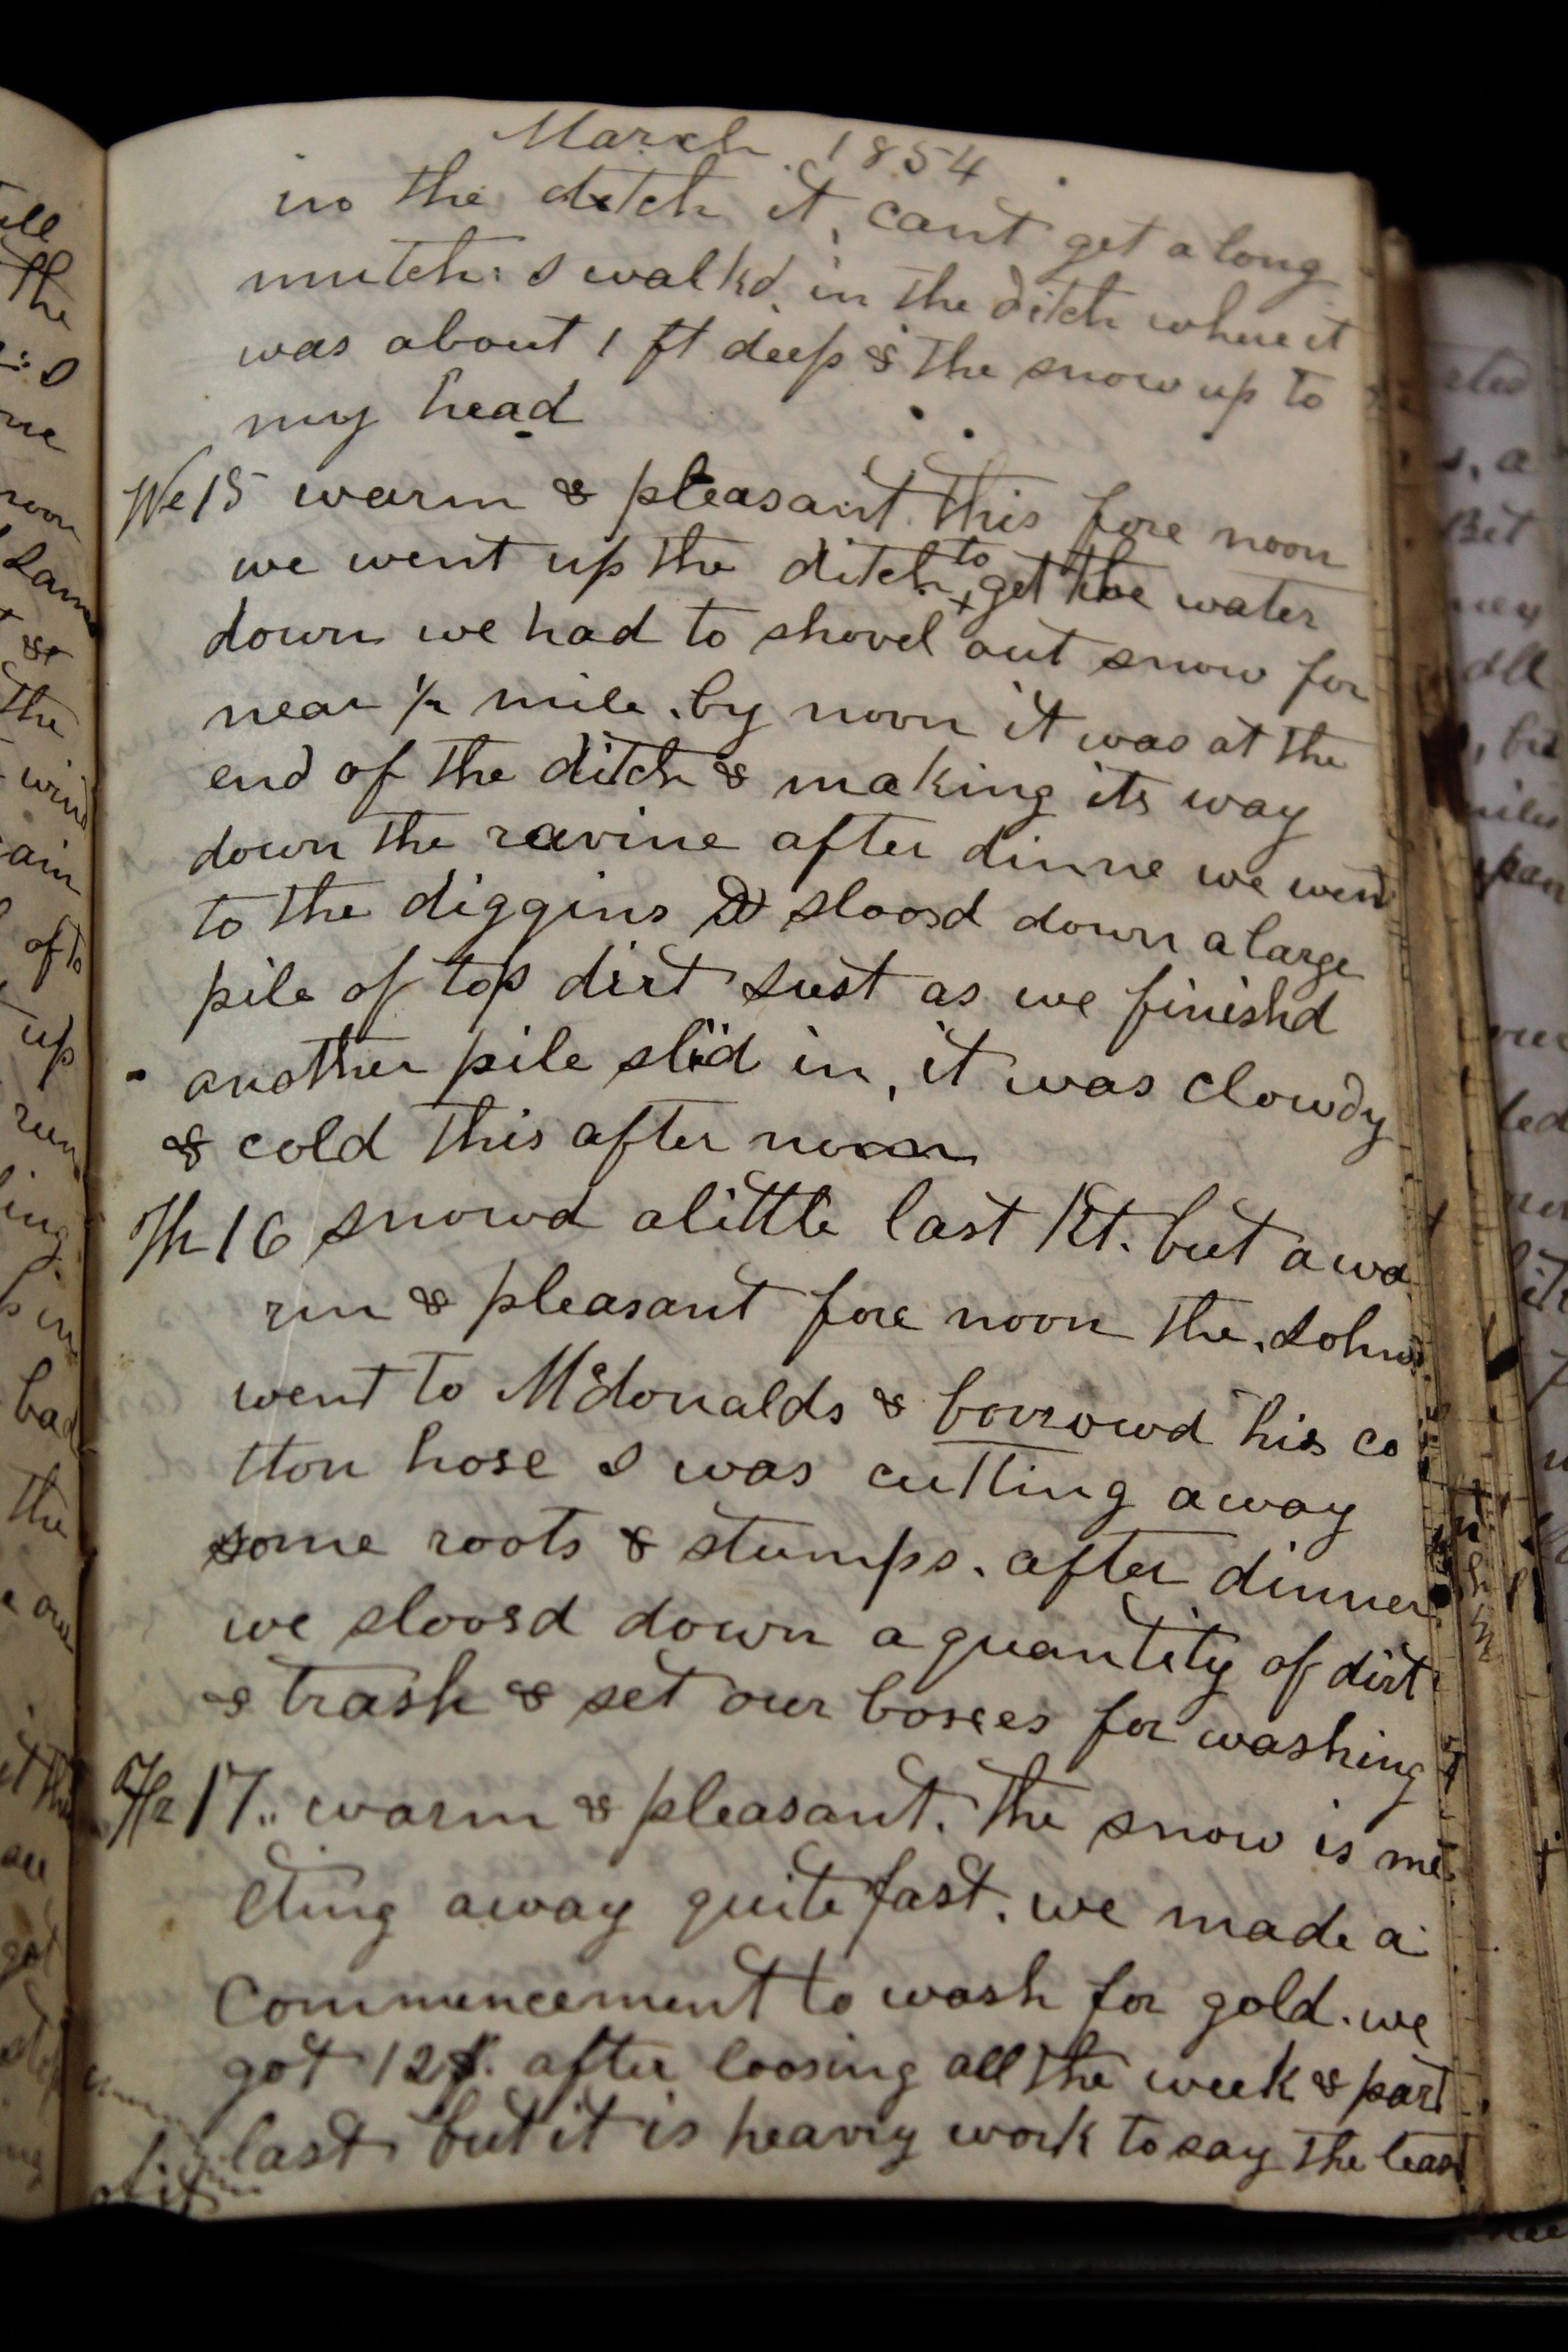 March 1854
in the ditch it, cant get along
mutch: I walkd in the ditch where it
was about 1 ft deep & the snow up to
my head
We 15 warm & pleasant this fore noon
we went up the ditch to get the water
down we had to shovel out snow for
near 1/2 mile. by noon it was at the
end of the ditch & making its way
down the ravine after dinne we went
to the diggins & sloosd down a large
pile of top dirt Just as we finishd
another pile slid in, it was clowdy
& cold this after noon
Th 16 snowd alittle last Nt. but a wa
rm & pleasant fore noon the Johns
went to McDonalds & borrowd his co
tton hose I was cutting away
some roots & stumps. after dinner
we sloosd down a quantity of dirt
& trash & set our boxees for washing
Fr 17.. warm & pleasant. the snow is me
lting away quite fast. we made a
Commencement to wash for gold. we
got 12$. after loosing all the week & part
last but it is heavy work to say the least
of it